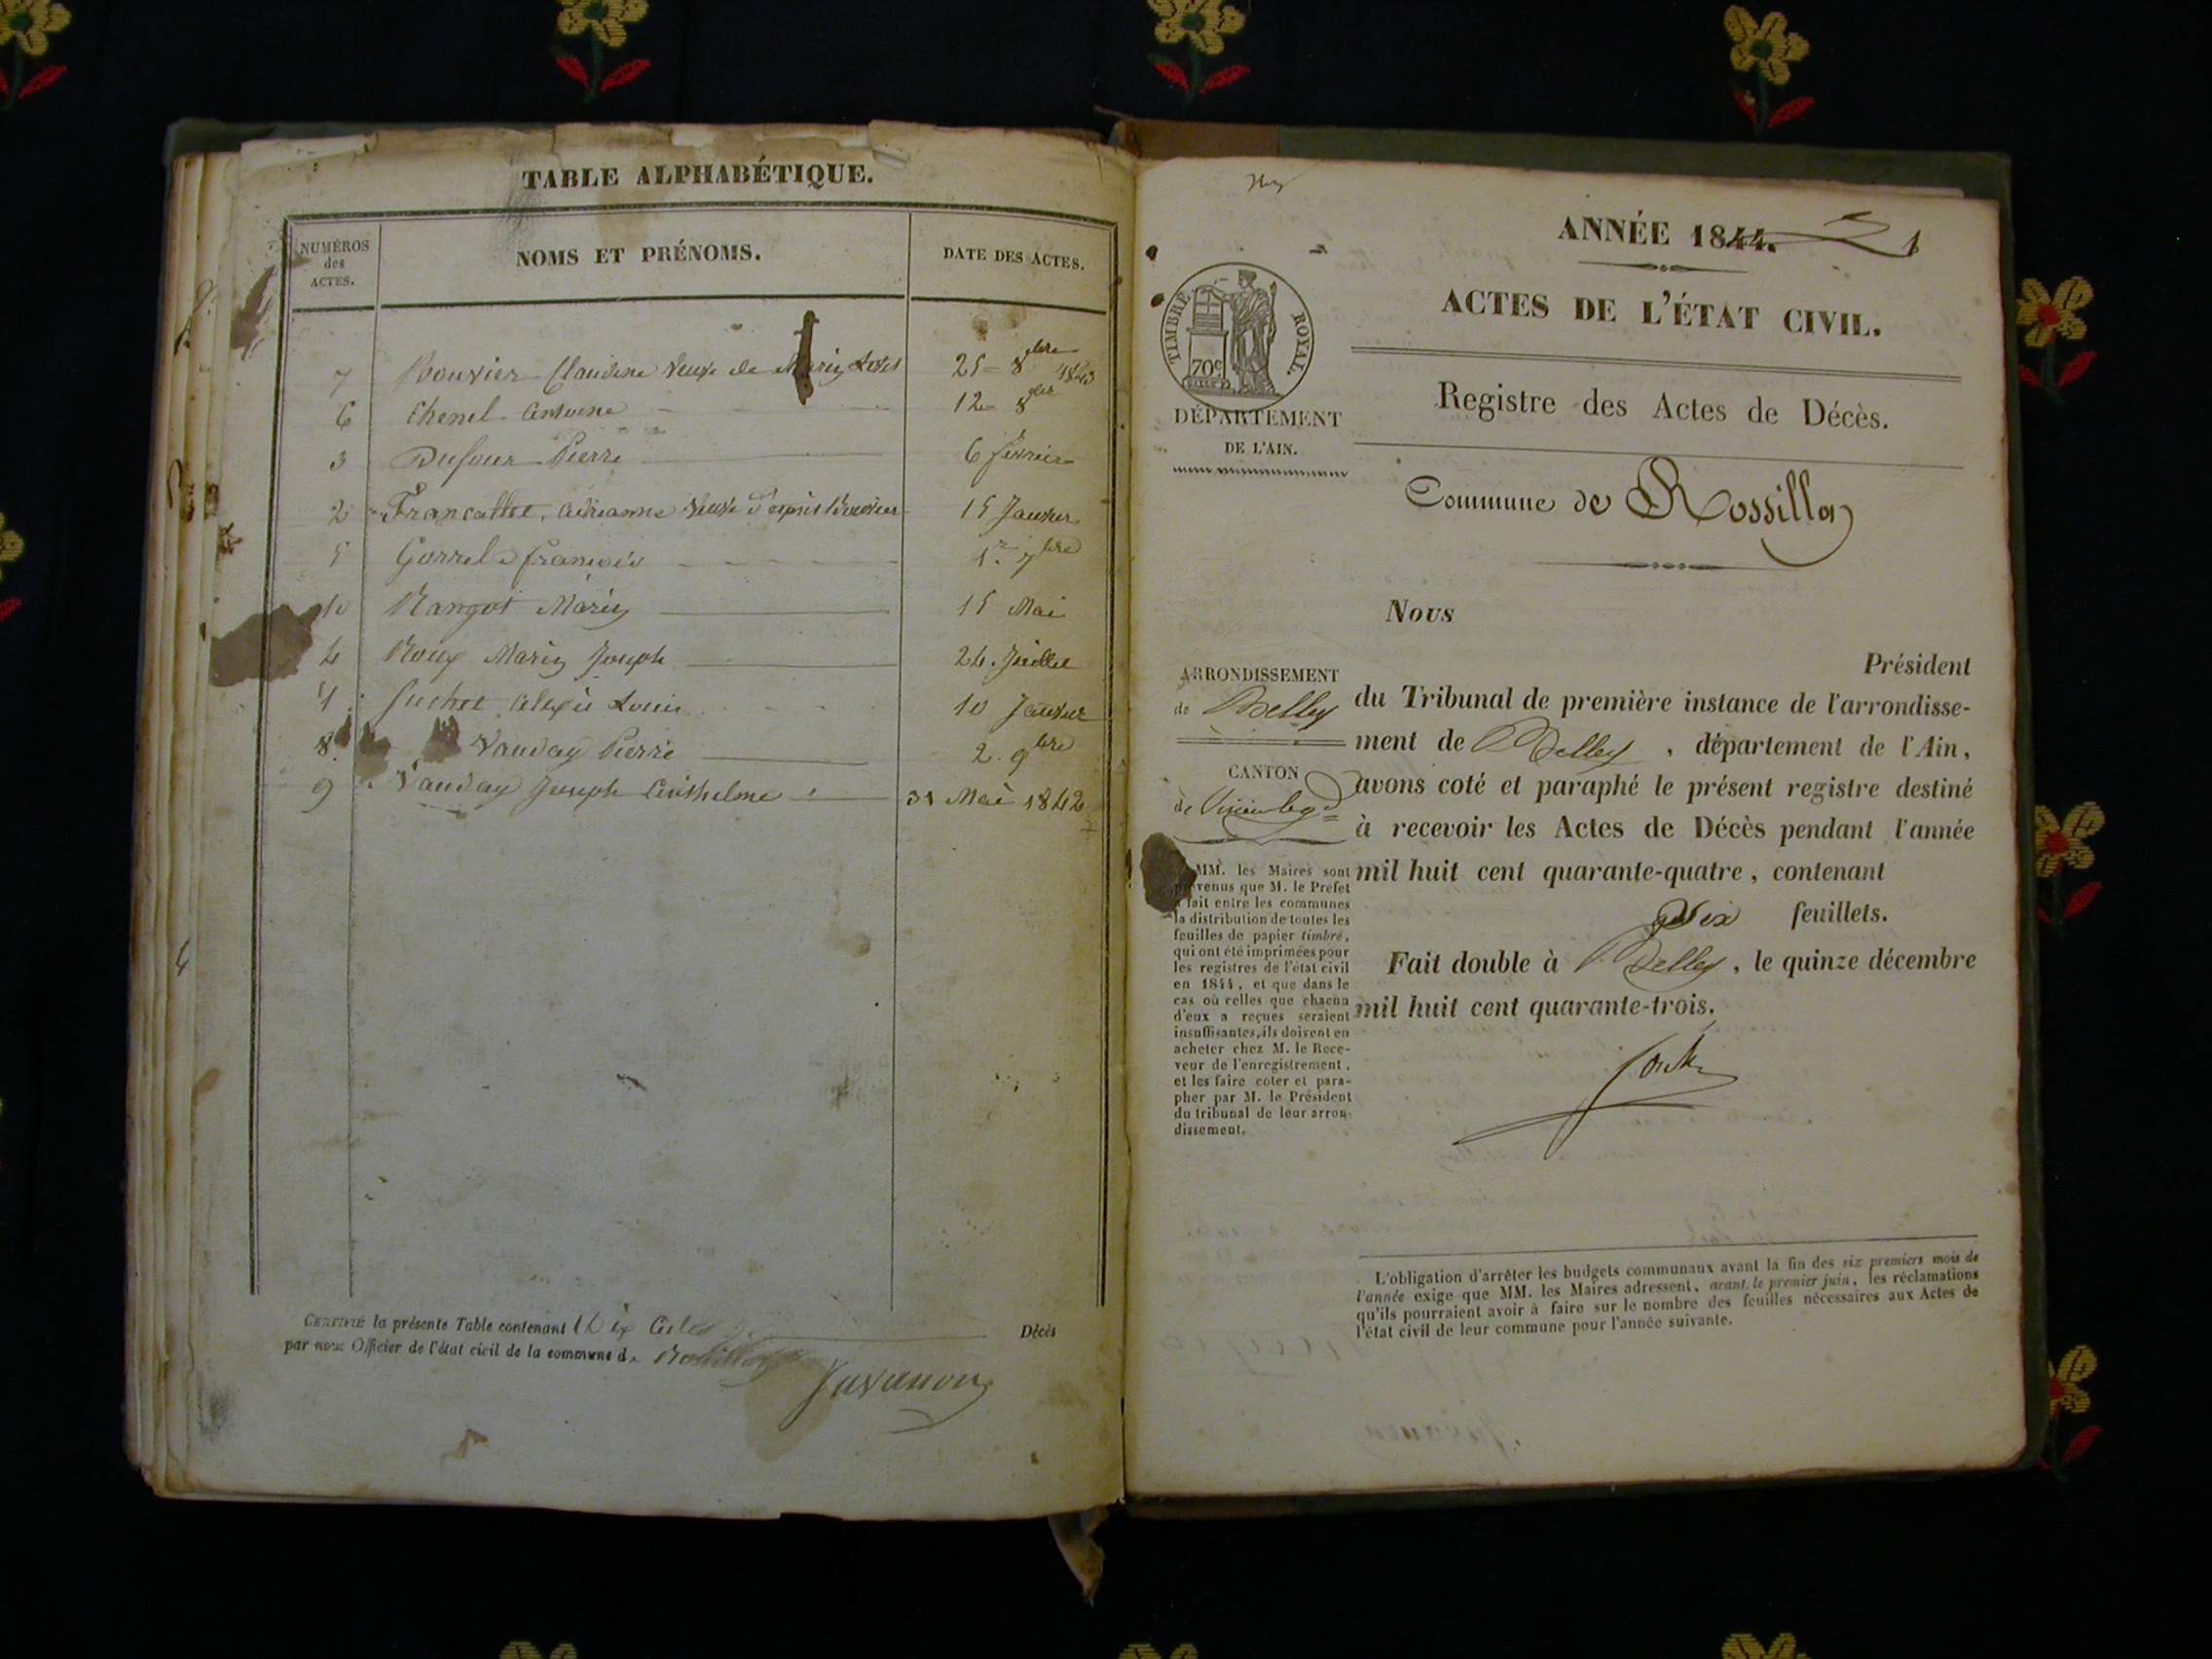 TABLE ALPHABÉTIQUE.
NUMÉROS des ACTES. NOMS ET PRÉNOMS. DATE DES ACTES.
7 Bouvier Claudine veuve de 25 8bre 1843
6 Chenel Antoine 12 8bre
3 Dufour Pierre 6 février
2 veuve 15 Janvier
5 Gorrel françois 1er 7bre
10 Mangot Marie 15 Mai
4 Roux Marie Joseph 24 Juillet
1 Suchet Alexis Louis 10 Janvier
8 Vauday Pierre 2. 9bre
9 Vauday Joseph Anthelme 31 Mai 1842
CERTIFIÉ la présente Table contenant Dix Actes de Décès
par nous Officier de l'état civil de la commune de Rossillon
Juvanon
ANNÉE 1844. 1
TIMBRE ROYAL.
70c
ACTES DE L'ÉTAT CIVIL.
Registre des Actes de Décès.
DÉPARTEMENT
DE L'AIN.
Commune de Rossillon
Nous
Président
ARRONDISSEMENT
de Belley
CANTON
de
du Tribunal de première instance de l'arrondisse-
ment de Belley, département de l'Ain,
avons coté et paraphé le présent registre destiné
à recevoir les Actes de Décès pendant l'année
mil huit cent quarante-quatre, contenant
feuillets.
Fait double à Belley, le quinze décembre
mil huit cent quarante-trois.
MM. les Maires sont
prévenus que M. le Préfet
a fait entre les communes
la distribution de toutes les
feuilles de papier timbré,
qui ont été imprimées pour
les registres de l'état civil
en 1844, et que dans le
cas où celles que chacun
d'eux a reçues seraient
insuffisantes, ils doivent en
acheter chez M. le Rece-
veur de l'enregistrement,
et les faire coter et para-
pher par M. le Président
du tribunal de leur arron-
dissement.
L'obligation d'arrêter les budgets communaux avant la fin des six premiers mois de
l'année exige que MM. les Maires adressent, avant le premier juin, les réclamations
qu'ils pourraient avoir à faire sur le nombre des feuilles nécessaires aux Actes de
l'état civil de leur commune pour l'année suivante.